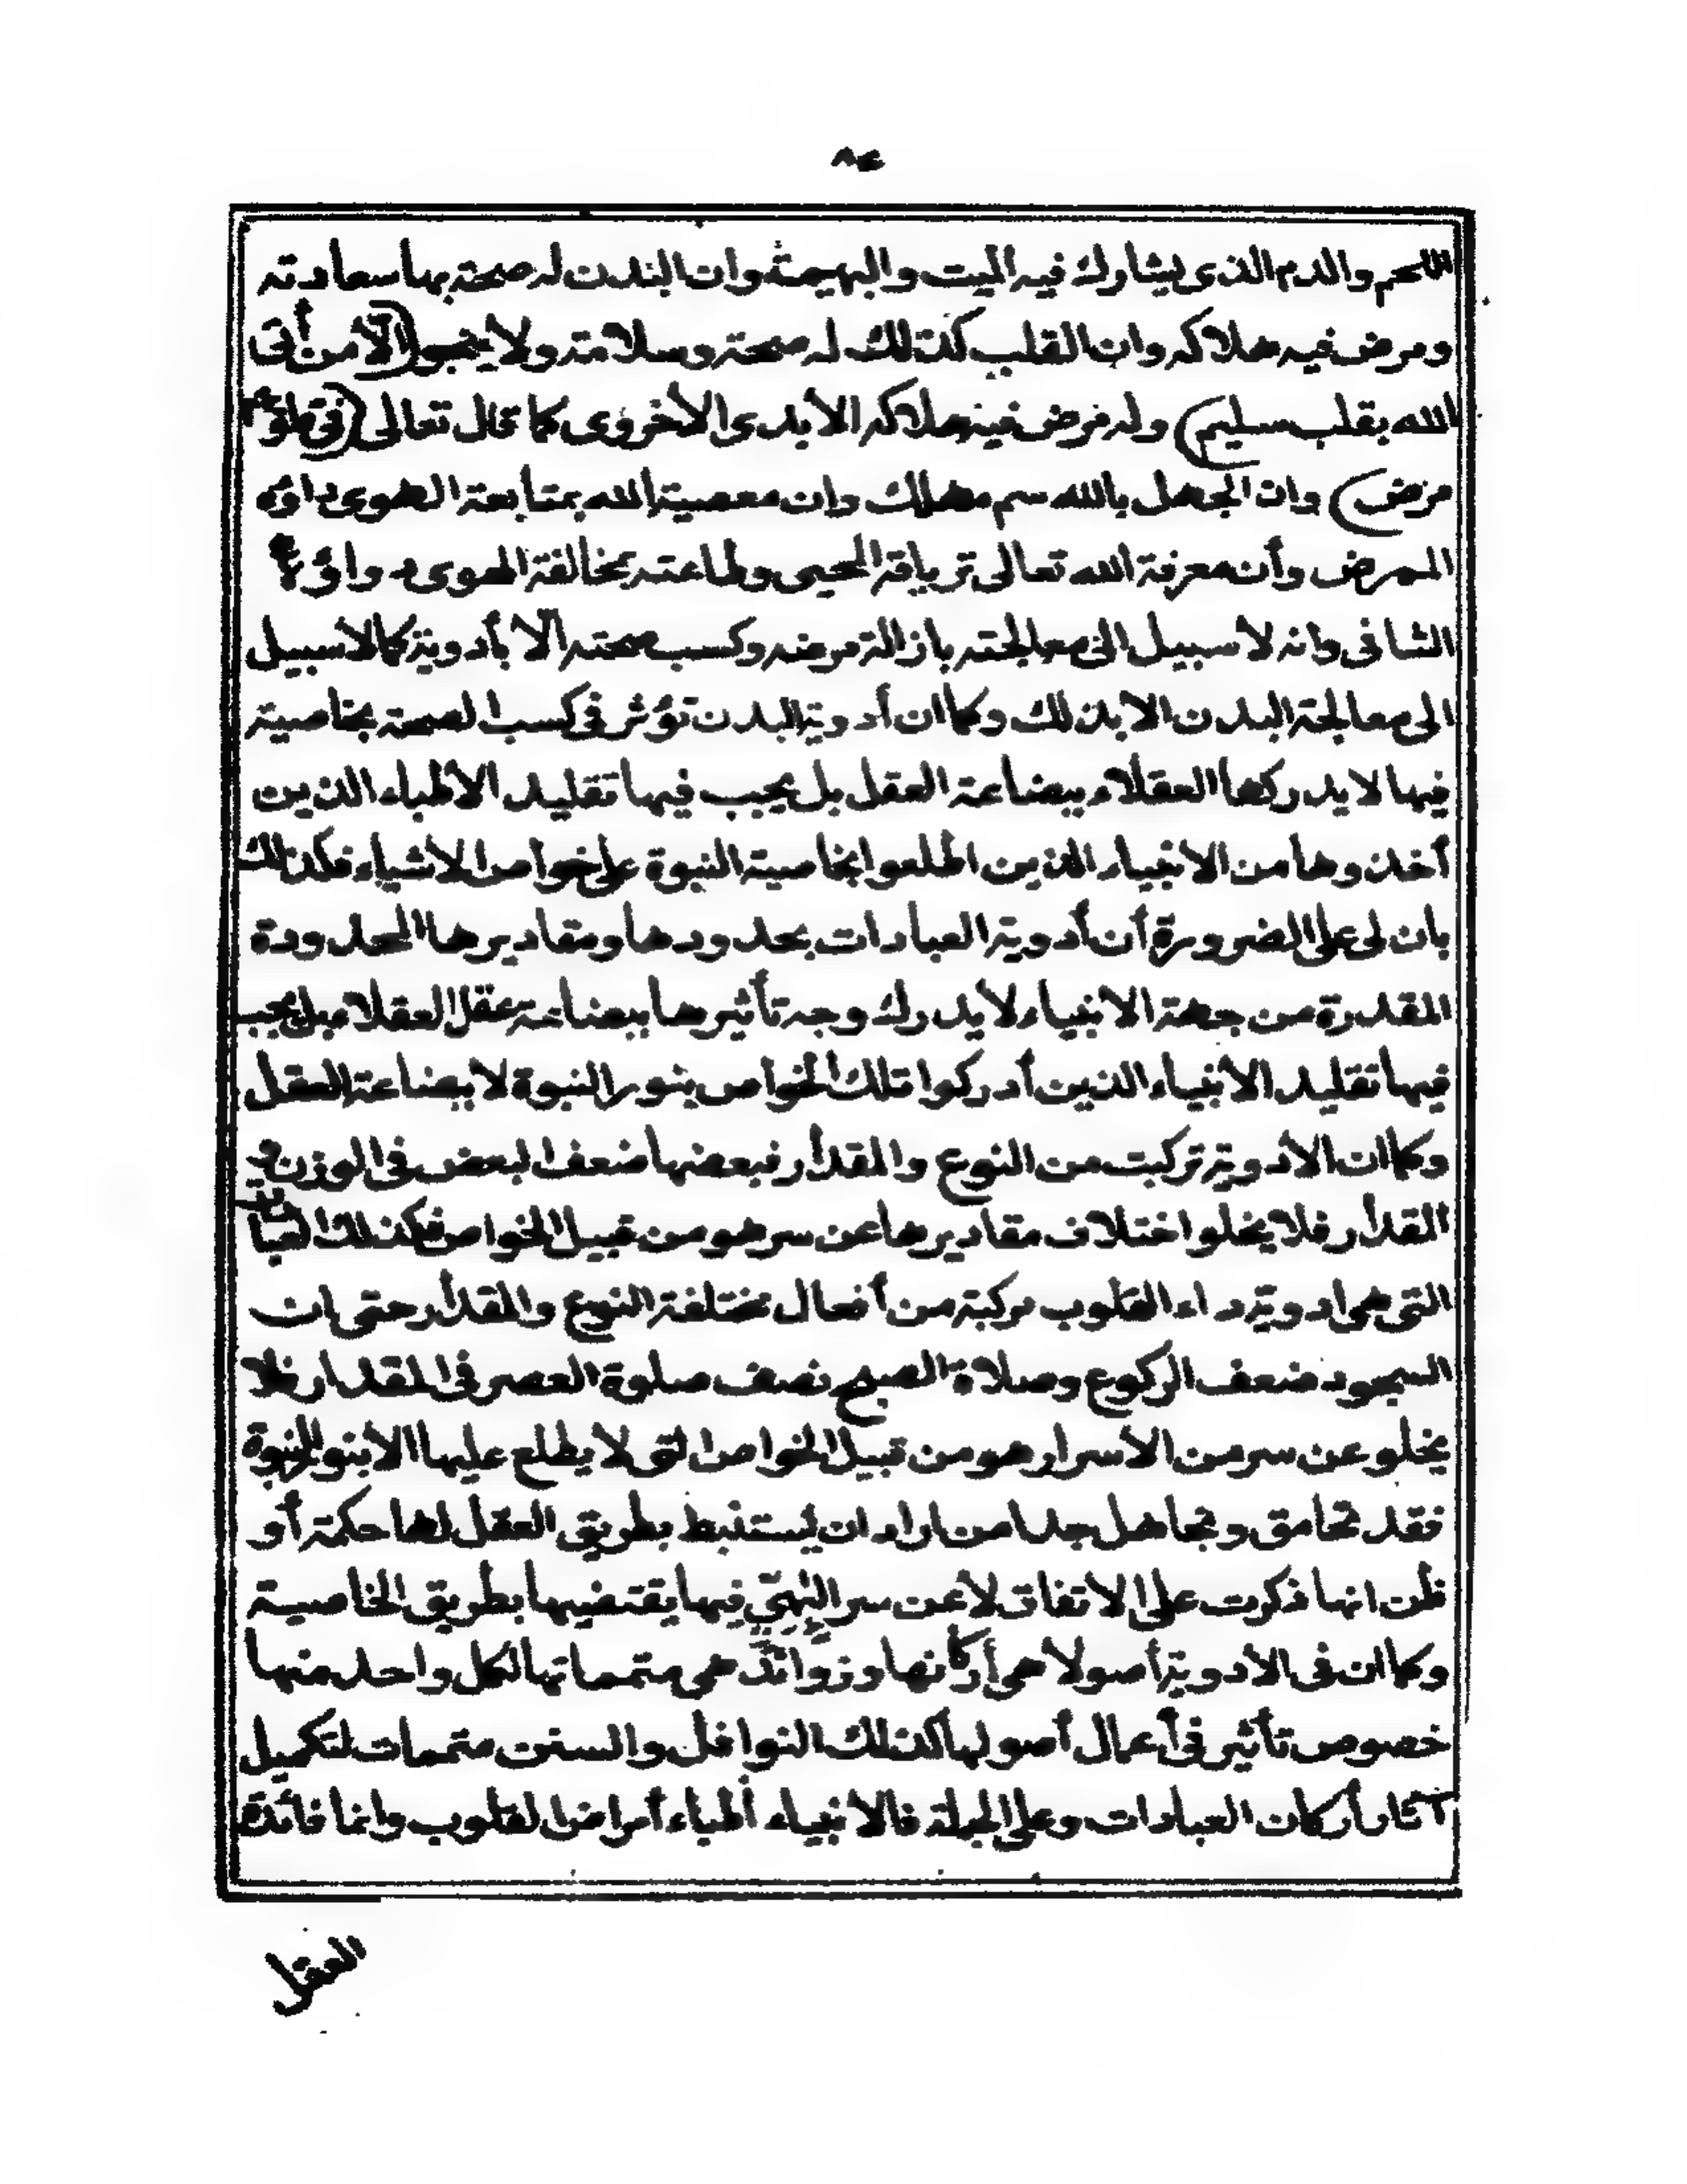 ٨٤
اللحم والدم الذى يشارك فيه الميت والبهيمة وان البدن له صحة بها سعادته
ومرض فيه هلاكه وان القلب كذلك له صحة وسلامة ولا ينجو (الا من أتى
الله بقلب سليم) وله مرض فيه هلاكه الأبدى الأخروى كما قال تعالى (فى قلوبهم
مرض) وان الجهل بالله سم مهلك وان معصية الله بمتابعة الهوى داؤه
الممرض وأن معرفة الله تعالى ترياقه المحيى وطاعته بمخالفة الهوى دواؤه
الشافى وانه لا سبيل الى معالجته بازالة مرضه وكسب صحته الا بأدوية كما لا سبيل
الى معالجة البدن الا بذلك وكما ان أدوية البدن تؤثر فى كسب الصحة بخاصية
فيها لا يدركها العقلاء ببضاعة العقل بل يجب فيها تقليد الأطباء الذين
أخذوها من الانبياء الذين اطلعوا بخاصية النبوة على خواص الاشياء فكذلك
بان لى على الضرورة أن أدوية العبادات بحدودها ومقاديرها المحدودة
المقدرة من جهة الانبياء لا يدرك وجه تأثيرها ببضاعة عقل العقلاء بل يجب
فيها تقليد الأنبياء الذين أدركوا تلك الخواص بنور النبوة لا ببضاعة العقل
وكما ان الأدوية تركبت من النوع والمقدار فبعضها ضعف البعض فى الوزن و
المقدار فلا يخلو اختلاف مقاديرها عن سر هو من قبيل الخواص فكذلك العبادات
التى هى ادوية داء القلوب مركبة من أفعال مختلفة النوع والمقدار حتى ان
السجود ضعف الركوع وصلاة الصبح نصف صلوة العصر فى المقدار فلا
يخلو عن سر من الأسرار هو من قبيل الخواص التى لا يطلع عليها الا بنور النبوة
فقد تحامق وتجاهل جدا من اراد ان يستنبط بطريق العقل لها حكمة أو
ظن انها ذكرت على الاتفاق لا عن سر الٰهىّ فيها يقتضيها بطريق الخاصية
وكما ان فى الأدوية أصولا هى أركانها وزوائد هى متمماتها لكل واحد منها
خصوص تأثير فى أعمال أصولها كذلك النوافل والسنن متممات لتكميل
آثار أركان العبادات وعلى الجملة فالانبياء أطباء أمراض القلوب وانما فائدة
العقل